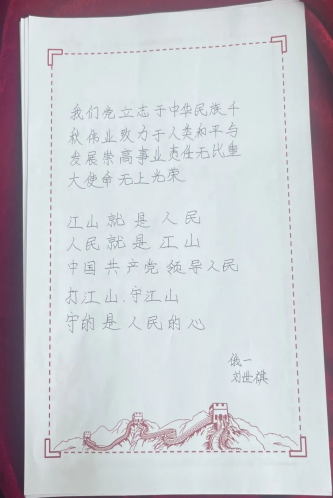 我们党立志于中华民族千
秋伟业致力于人类和平与
发展崇高事业责任无比重
大使命无上光荣
江山就是人民
人民就是江山
中国共产党领导人民
打江山.守江山
守的是人民的心
俄一
刘世祺